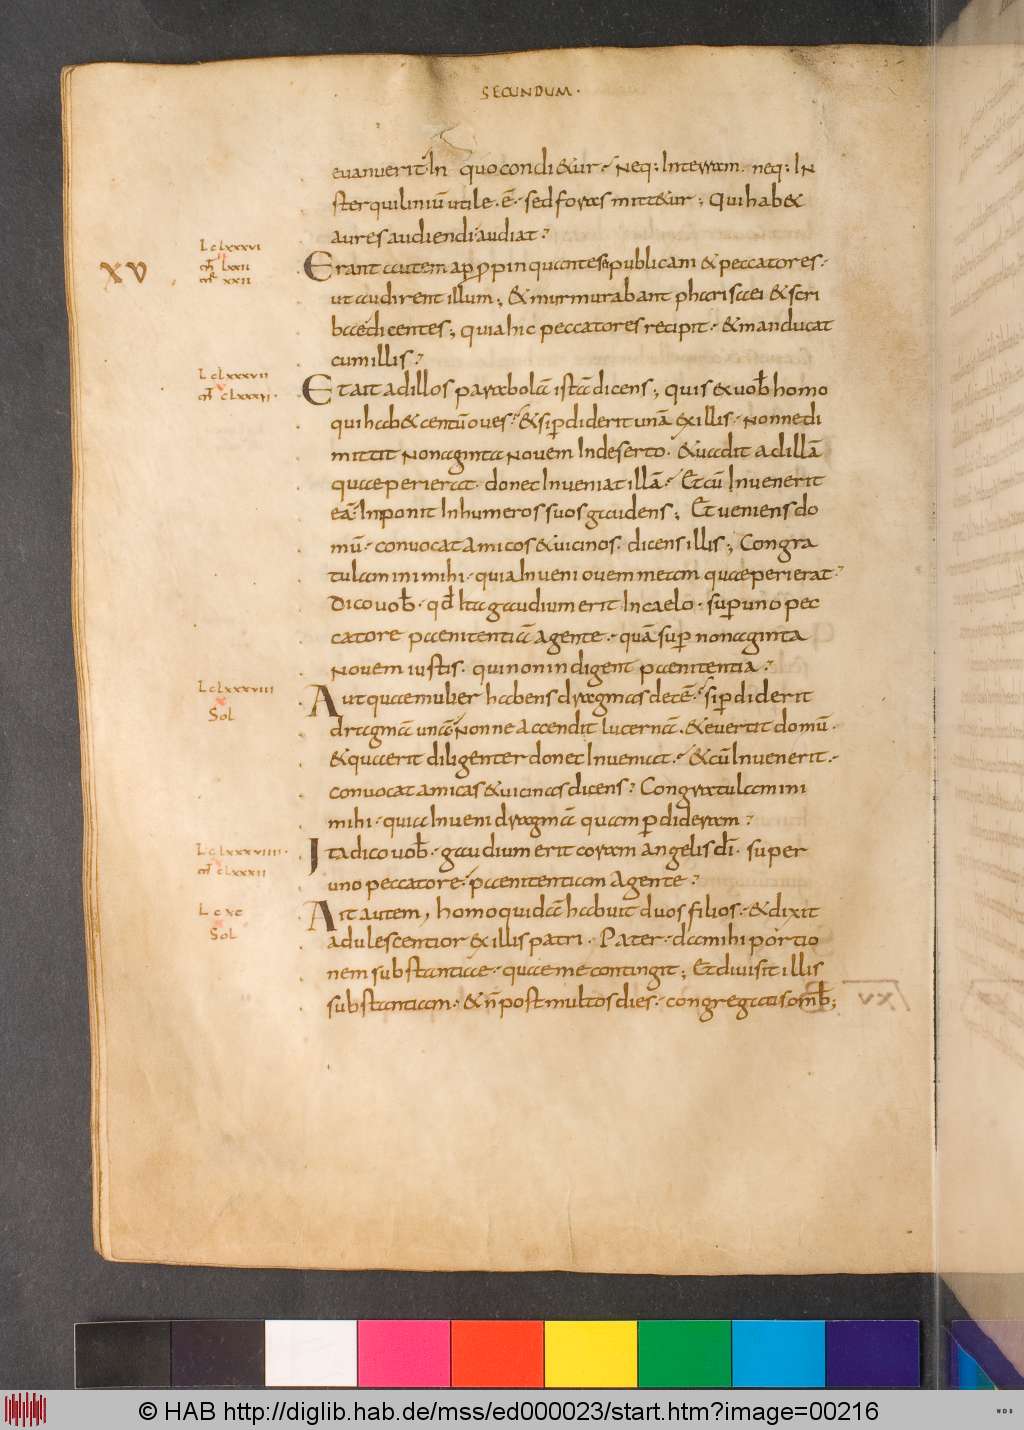 SECUNDUM·
evanuerit· In quo condi&ur· Neq: In terram. neq: IN
sterquiliniū utile. ē· sed foras mitt&ur; Qui hab&
aures audiendi audiat?
XV
L cLxxxvi
mͭ Lxxii
mͬ xxii
Erant autem app̄pinquantes & publicani & peccatores·
ut audirent illum; & murmurabant pharisaei & scri
bae dicentes; quia hic peccatores recipit· & manducat
cum illis?
L cLxxxvii
mͭ cLxxxii·
Et ait ad illos parabolā istā dicens; quis ex vob̄ homo
qui hab& centū oves· & si p̄diderit unā ex illis· Nonne di
mittit Nonaginta Novem In deserto. & vadit ad illā
quae perierat· donec Inveniat illā· Et cū Invenerit
eā· Inponit In humeros suos gaudens; Et veniens do
mū· convocat amicos & vicinos· dicens illis; Congra
tulamini mihi· quia Inveni ovem meam quae perierat?
Dico vob̄· qd̄ Ita gaudium erit In caelo· sup uno pec
catore paenitentiā agente· quā sup nonaginta
Novem iustis· qui non indigent paenitentia?
L cLxxxviii
Sol
Aut quae mulier habens dragmas decē· si p̄diderit
dragmā unā Nonne accendit lucernā. & evertit domū·
& quaerit diligenter donec Inveniat· & cū Invenerit·
convocat amicas & vicinas dicens? Congratulamini
mihi· quia Inveni dragmā quam p̄dideram?
L cLxxxviiii·
mͭ cLxxxii
Ita dico vob̄· gaudium erit coram angelis dī· super
uno peccatore· paenitentiam agente?
L cxc
Sol
Ait autem, homo quidā habuit duos filios· & dixit
adulescentior ex illis patri· Pater· da mihi portio
nem substantiae· quae me contingit; Et divisit illis
substantiam· & n̄ post multos dies· congregatis omib̄;
© HAB http://diglib.hab.de/mss/ed000023/start.htm?image=00216